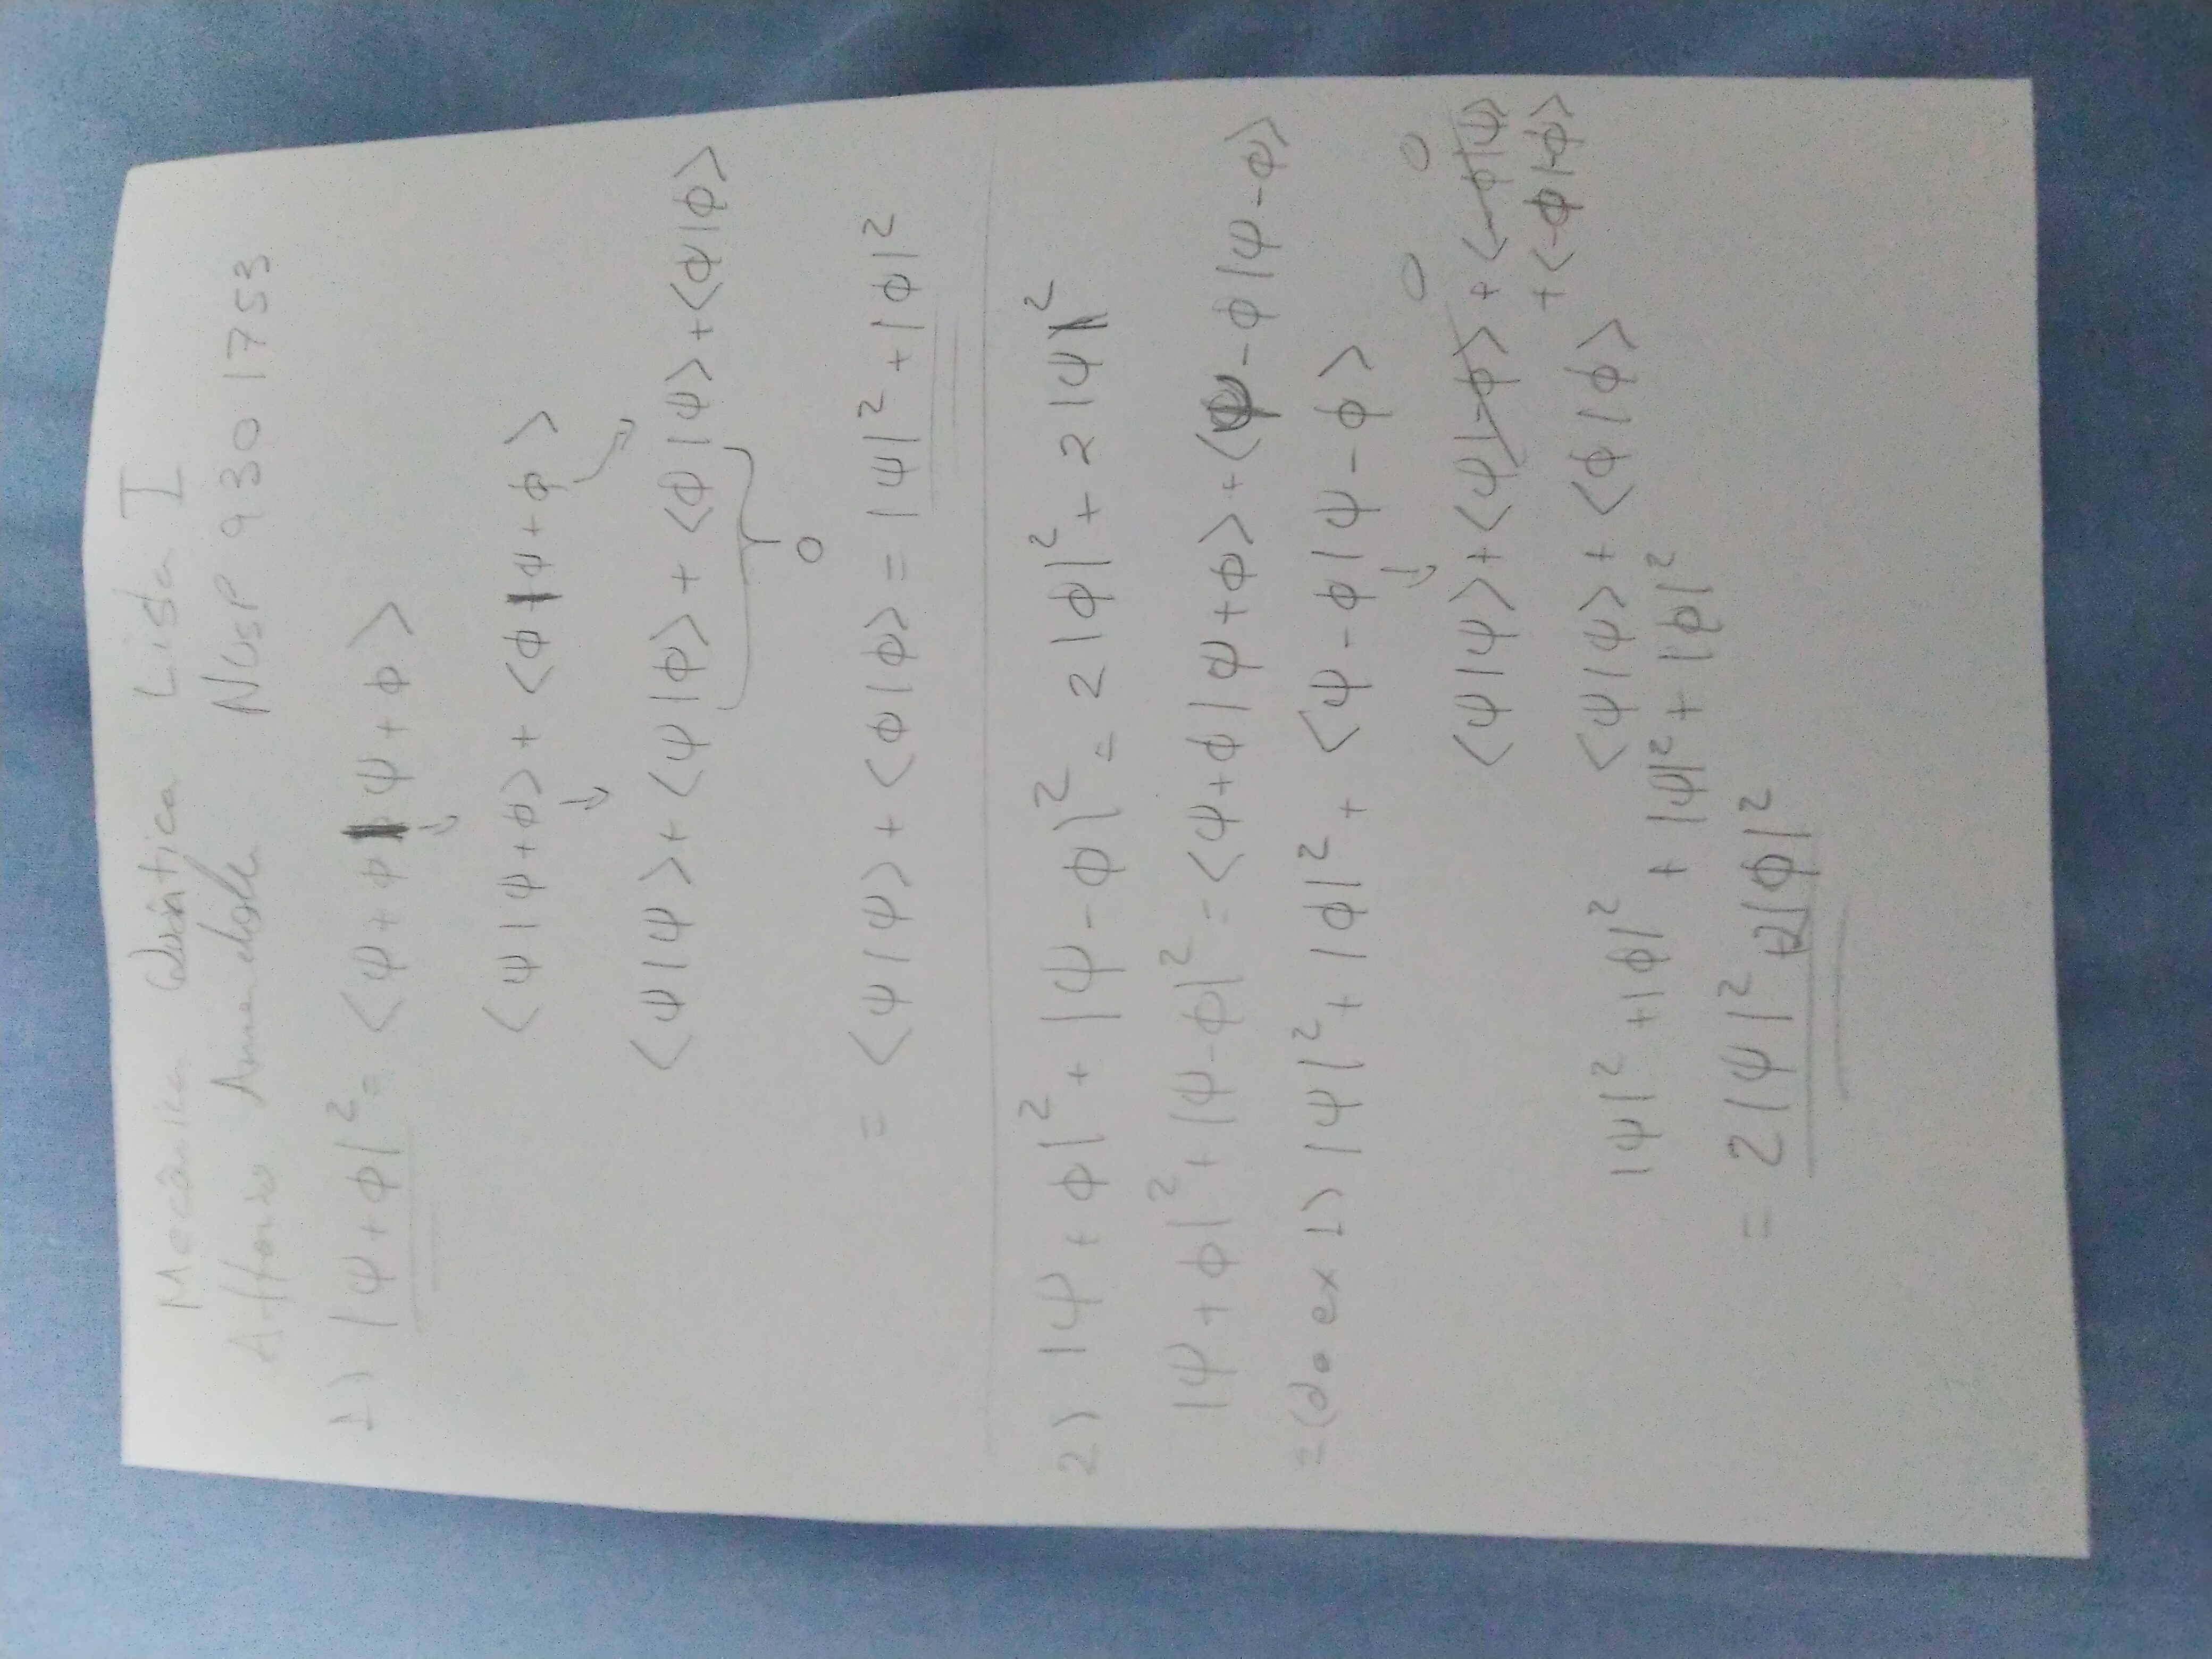 Mecânica Quântica Lista I
Affonso Amendola NUSP 9301753
1) |ψ + ϕ|² = <ψ + ϕ | ψ + ϕ>
↓
<ψ | ψ + ϕ> + <ϕ | ψ + ϕ>
↓ ↘
<ψ | ψ> + <ψ | ϕ> + <ϕ | ψ> + <ϕ | ϕ>
0
= <ψ | ψ> + <ϕ | ϕ> = |ψ|² + |ϕ|²
2) |ψ + ϕ|² + |ψ - ϕ|² = 2|ϕ|² + 2|ψ|²
|ψ + ϕ|² + |ψ - ϕ|² = <ψ + ϕ | ψ + ϕ> + <ψ - ϕ | ψ - ϕ>
= (do ex 1) |ψ|² + |ϕ|² + <ψ - ϕ | ψ - ϕ>
↓ 0 0
<ψ | ψ> + <ψ | -ϕ> + <-ϕ | ψ>
+ <-ϕ | -ϕ>
<ψ | ψ> + <ϕ | ϕ>
|ψ|² + |ϕ|² + |ψ|² + |ϕ|²
= 2|ψ|² + 2|ϕ|²